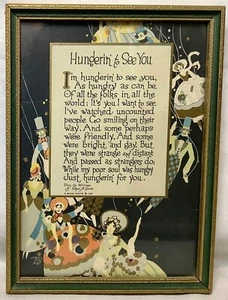 Hungerin' to See You
I'm hungerin' to see you,
As hungry as can be,
Of all the folks in all the
world: It's you I want to see.
I've watched uncounted
people Go smiling on their
way, And some perhaps
were friendly, And some
were bright and gay. But
they were strange and distant
And passed as strangers do,
While my poor soul was hungry
Just hungerin' for you.